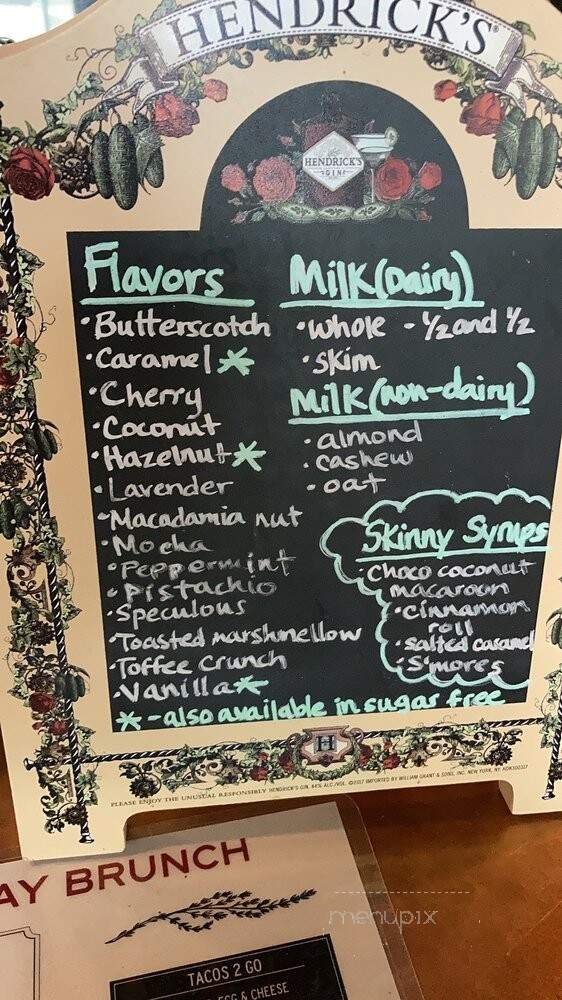 HENDRICK'S
HENDRICK'S
GIN
Flavors
• Butterscotch
• Caramel *
• Cherry
• Coconut
• Hazelnut *
• Lavender
• Macadamia nut
• Mocha
• Peppermint
• Pistachio
• Speculous
• Toasted marshmellow
• Toffee Crunch
• Vanilla *
* - also available in sugar free
Milk (Dairy)
• Whole - 1/2 and 1/2
• Skim
Milk (non-dairy)
• almond
• cashew
• oat
Skinny Syrups
• Choco coconut
macaroon
• Cinnamon
roll
• Salted caramel
• S'mores
H
PLEASE ENJOY THE UNUSUAL RESPONSIBLY HENDRICK'S GIN, 44% ALC/VOL. ©2017 IMPORTED BY WILLIAM GRANT & SONS, INC. NEW YORK, NY.
AY BRUNCH
menupix
TACOS 2 GO
EGG & CHEESE